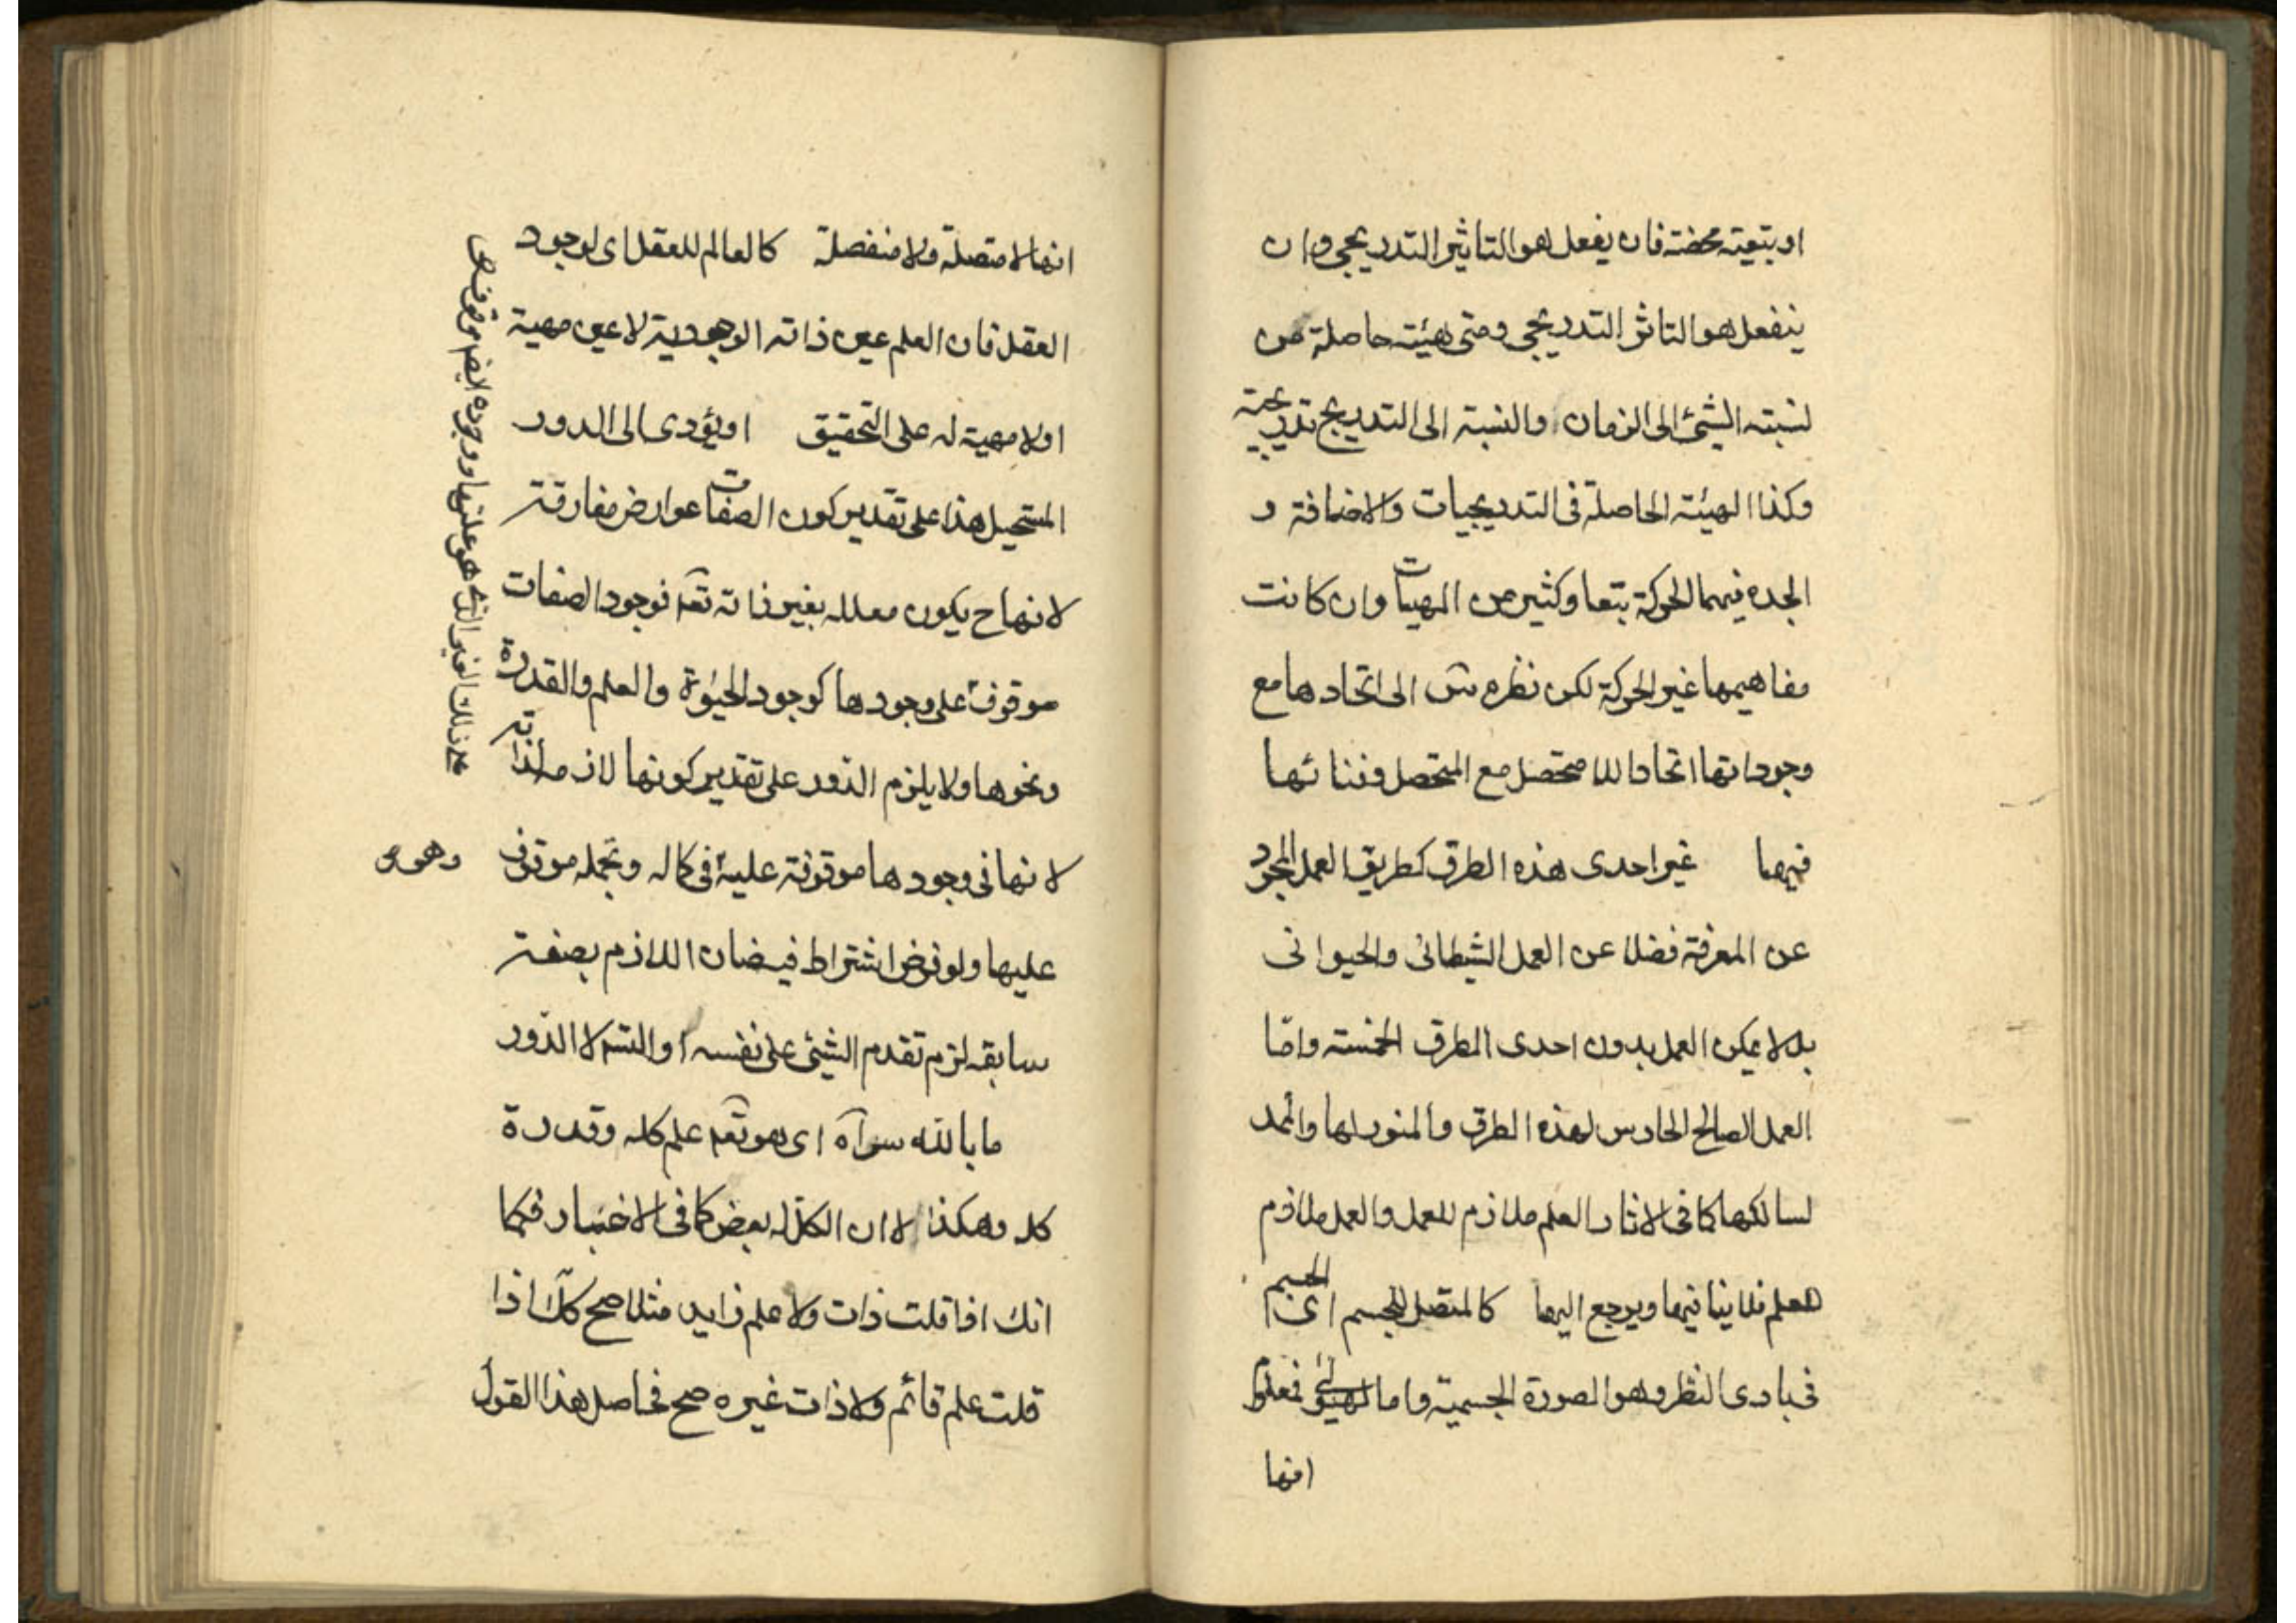 او بتعية محضة فان يفعل هو التاثير التدريجي وان
ينفعل هو التاثر التدريجي ومتى هيئة حاصلة من
نسبته الشئ الى الزمان والنسبة الى التدريج تدريجية
وكذا الهيئة الحاصلة فى التدريجيات والاضافة و
الجدة فيهما الحركة بتعا وكثير من المهيات وان كانت
مفاهيمها غير الحركة لكن نظره الى اتحادها مع
وجوداتها اتحاد اللا متحصل مع المتحصل وفنائها
فيها غير احدى هذه الطرق كطريق العمل المجرد
عن المعرفة فضلا عن العمل الشيطانى والحيوانى
بل لا يمكن العمل بدون احدى الطرق الخمسة وامّا
العمل الصالح الحارس لهذه الطرق والمنور لها والممد
لسالكها كما فى الاثار العلم ملازم للعمل والعمل ملازم
للعلم فلا ينافيها ويرجع اليها كالمتصل للجسم اى الجسم
فى بادى النظر وهو الصورة الجسمية واما الهيولى فمعلوم
انها
انها لا متصلة ولا منفصلة كالعالم للعقل اى لوجود
العقل فان العلم عين ذاته الوجودية لا عين مهية
اولا مهية له على التحقيق او يؤدى الى الدور
المستحيل هذا على تقدير كون الصفات عوارض مفارقة
لانها ح يكون معلله بغير ذاته تعه فوجود الصفات
موقوف على وجودها كوجود الحيوة والعلم والقدرة
ونحوها ولا يلزم الدور على تقدير كونها لازمة لذاته
لانها فى وجودها موقوفة عليه فى كماله وتجمله موقوف وهو
عليها ولو فرض اشتراط فيضان اللازم بصفة
سابقة لزم تقدم الشئ على نفسه او التسلا الدور
ما بالله سواه اى هو تعه علم كله وقدرة
كله وهكذا لا ان الكل له بعض كما فى الاخبار فكما
انك اذا قلت ذات ولا علم زايد مثلا صح كك اذا
قلت علم قائم ولا ذات غيره صح فحاصل هذا القول
على ذلك الغير الذى هو علتها ووجوده ايضا موقوف